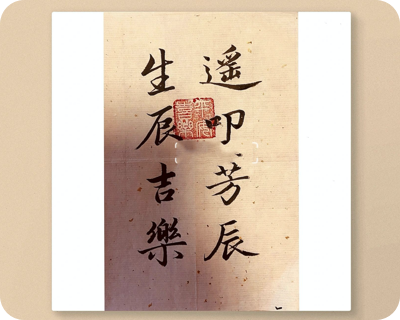 遥叩芳辰
生辰吉樂